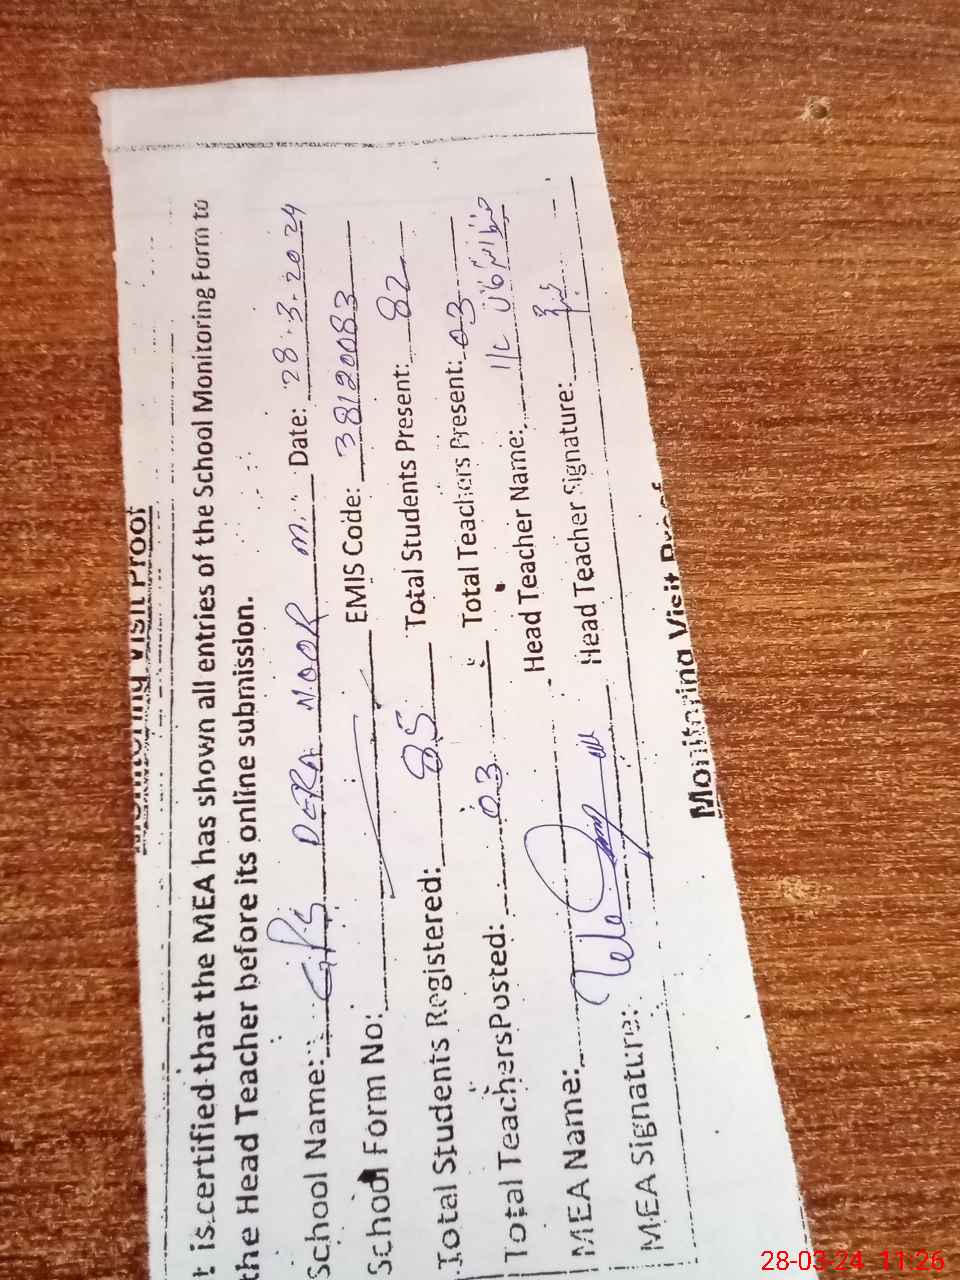 Monitoring Visit Proof
t is certified that the MEA has shown all entries of the School Monitoring Form to
the Head Teacher before its online submission.
School Name: GPS DERA NOOR M. Date: 28.3.2024
School Form No: EMIS Code: 38120083
Total Students Registered: 85 Total Students Present: 82
Total Teachers Posted: 03 Total Teachers Present: 03
MEA Name: Head Teacher Name:
MEA Signature: Head Teacher Signature:
Monitoring Visit Proof
28-03-24 11:26